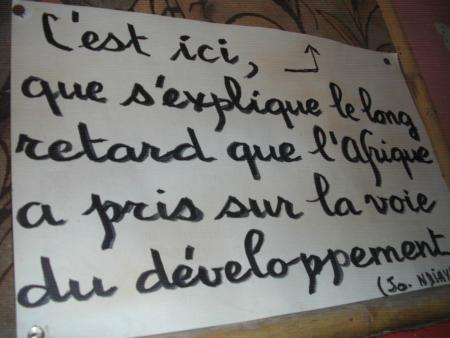 C'est ici,
que s'explique le long
retard que l'Afrique
a pris sur la voie
du développement
(Jo. NDIAY